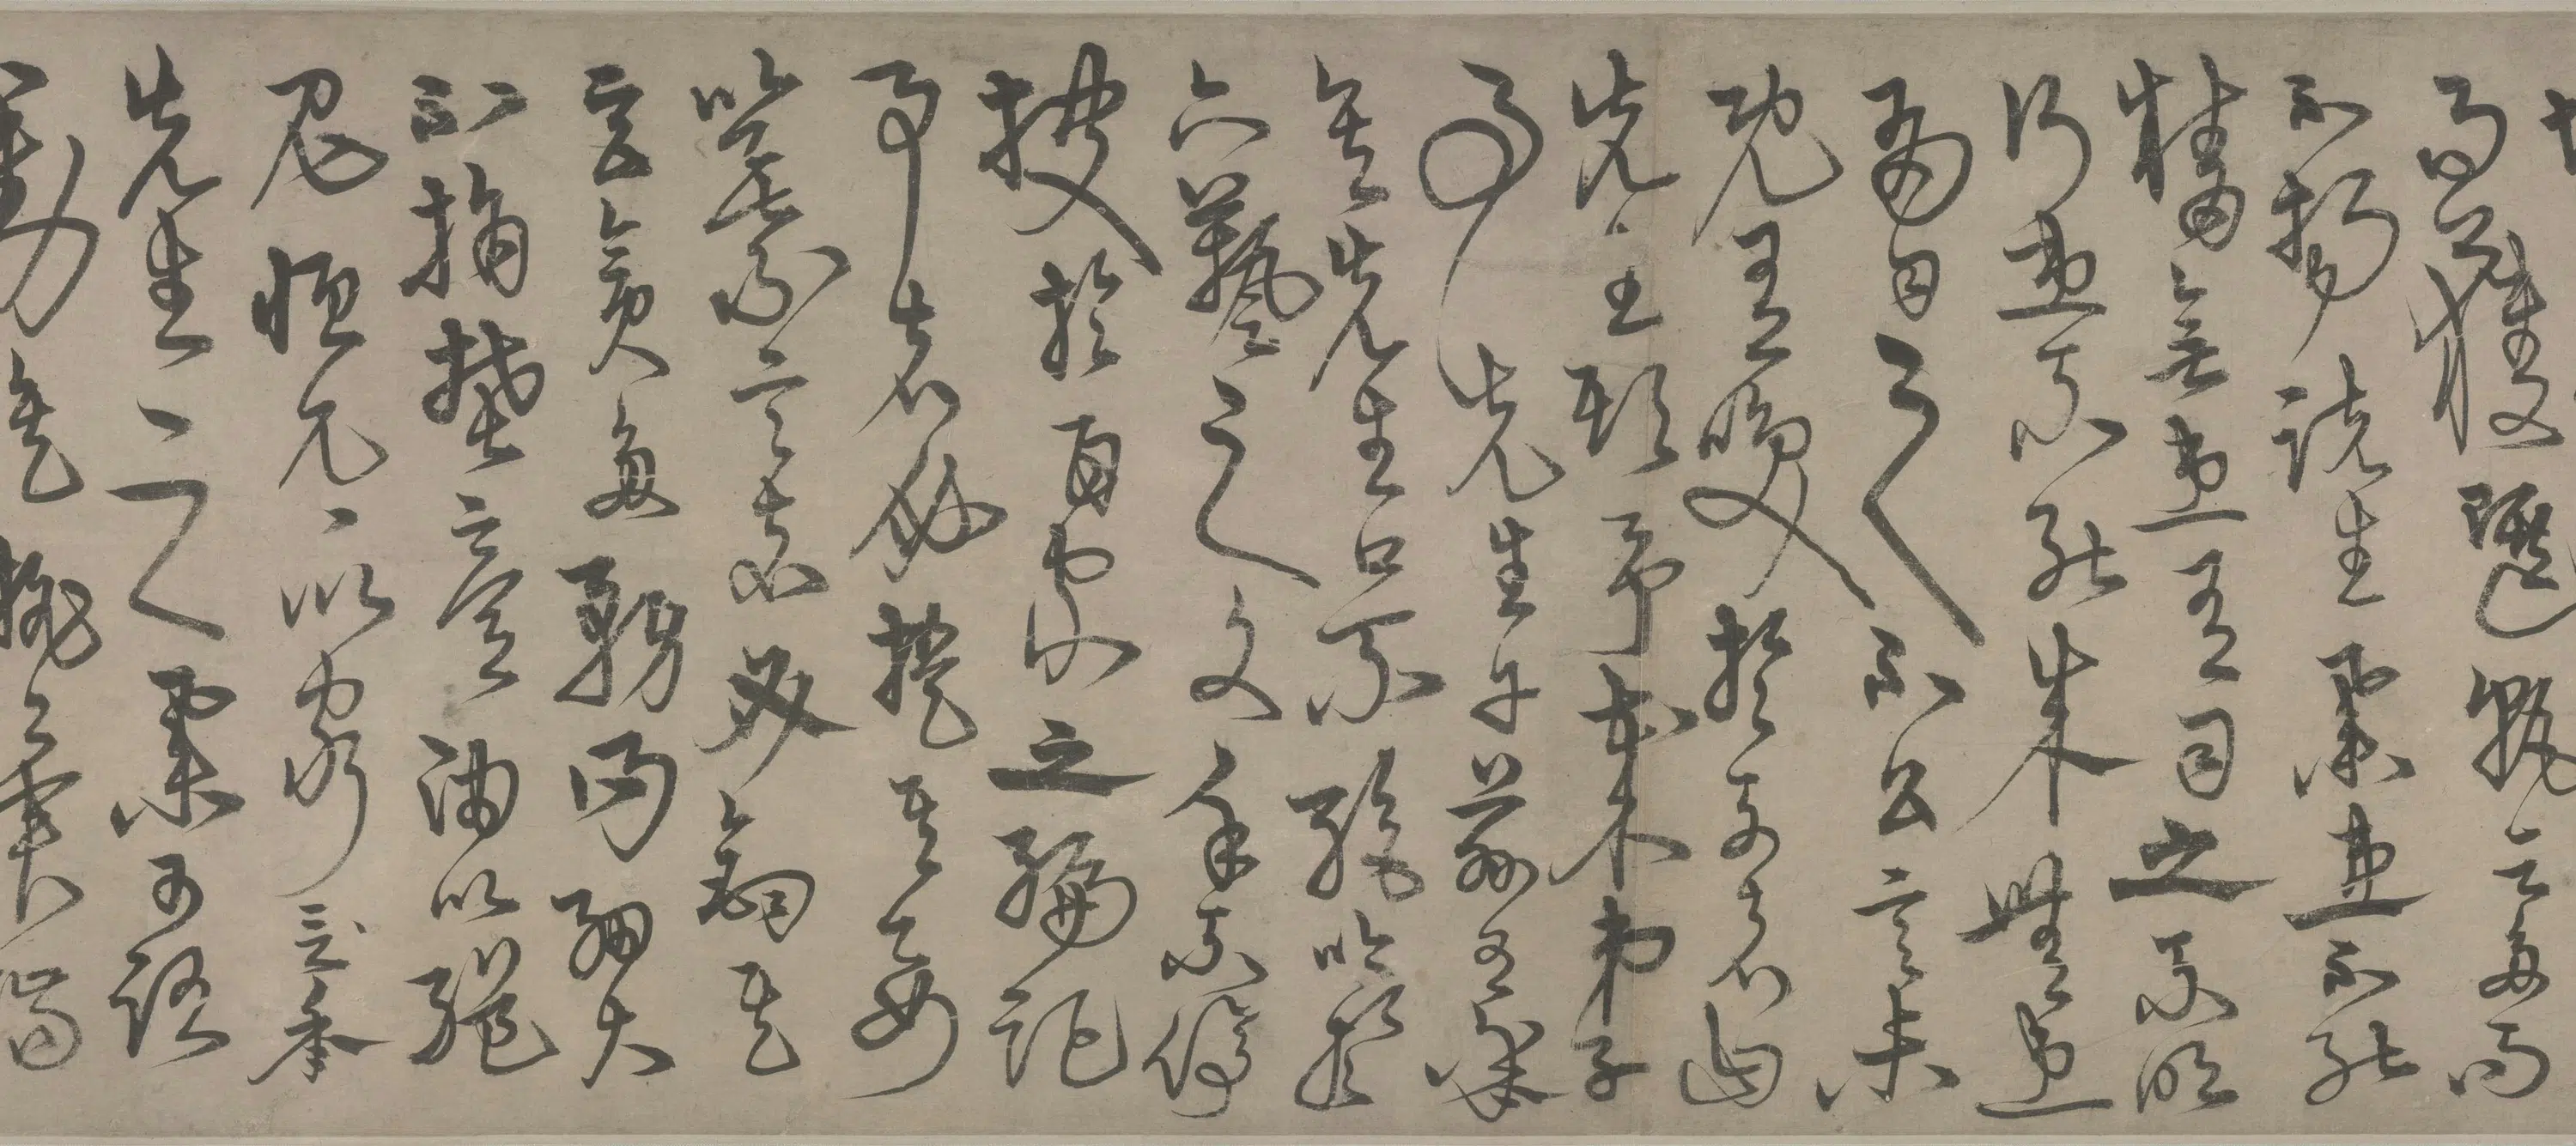 而獲選孰云多而
不揚諸生業患不能
精無患有司之不明
行患不能成無患
有司之不公言未
既有笑於列者曰
先生欺予哉弟子
事先生于茲有年
矣先生口不絕吟於
六藝之文手不停
披於百家之編記
事者必提其要
纂言者必鉤其
玄貪多務得細大
不捐焚膏油以繼
晷恒兀兀以窮年
先生之業可謂
勤矣